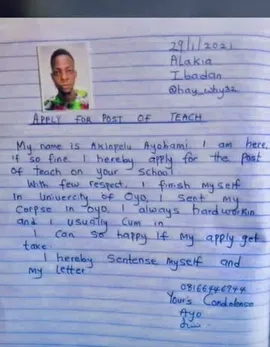 29/1/2021
Alakia
Ibadan
@hay_whysz
APPLY FOR POST OF TEACH
My name is Akinpelu Ayobami. I am here
if so fine. I hereby apply for the post
of teach on your school
With few respect, I finish myself
in Univercity of Oyo, I sent my
corpse in Oyo, I always hardworkin
and I usually cum in
I can so happy if my apply get
take.
I hereby Sentense myself and
my letter
Your's Condolence
Ayo